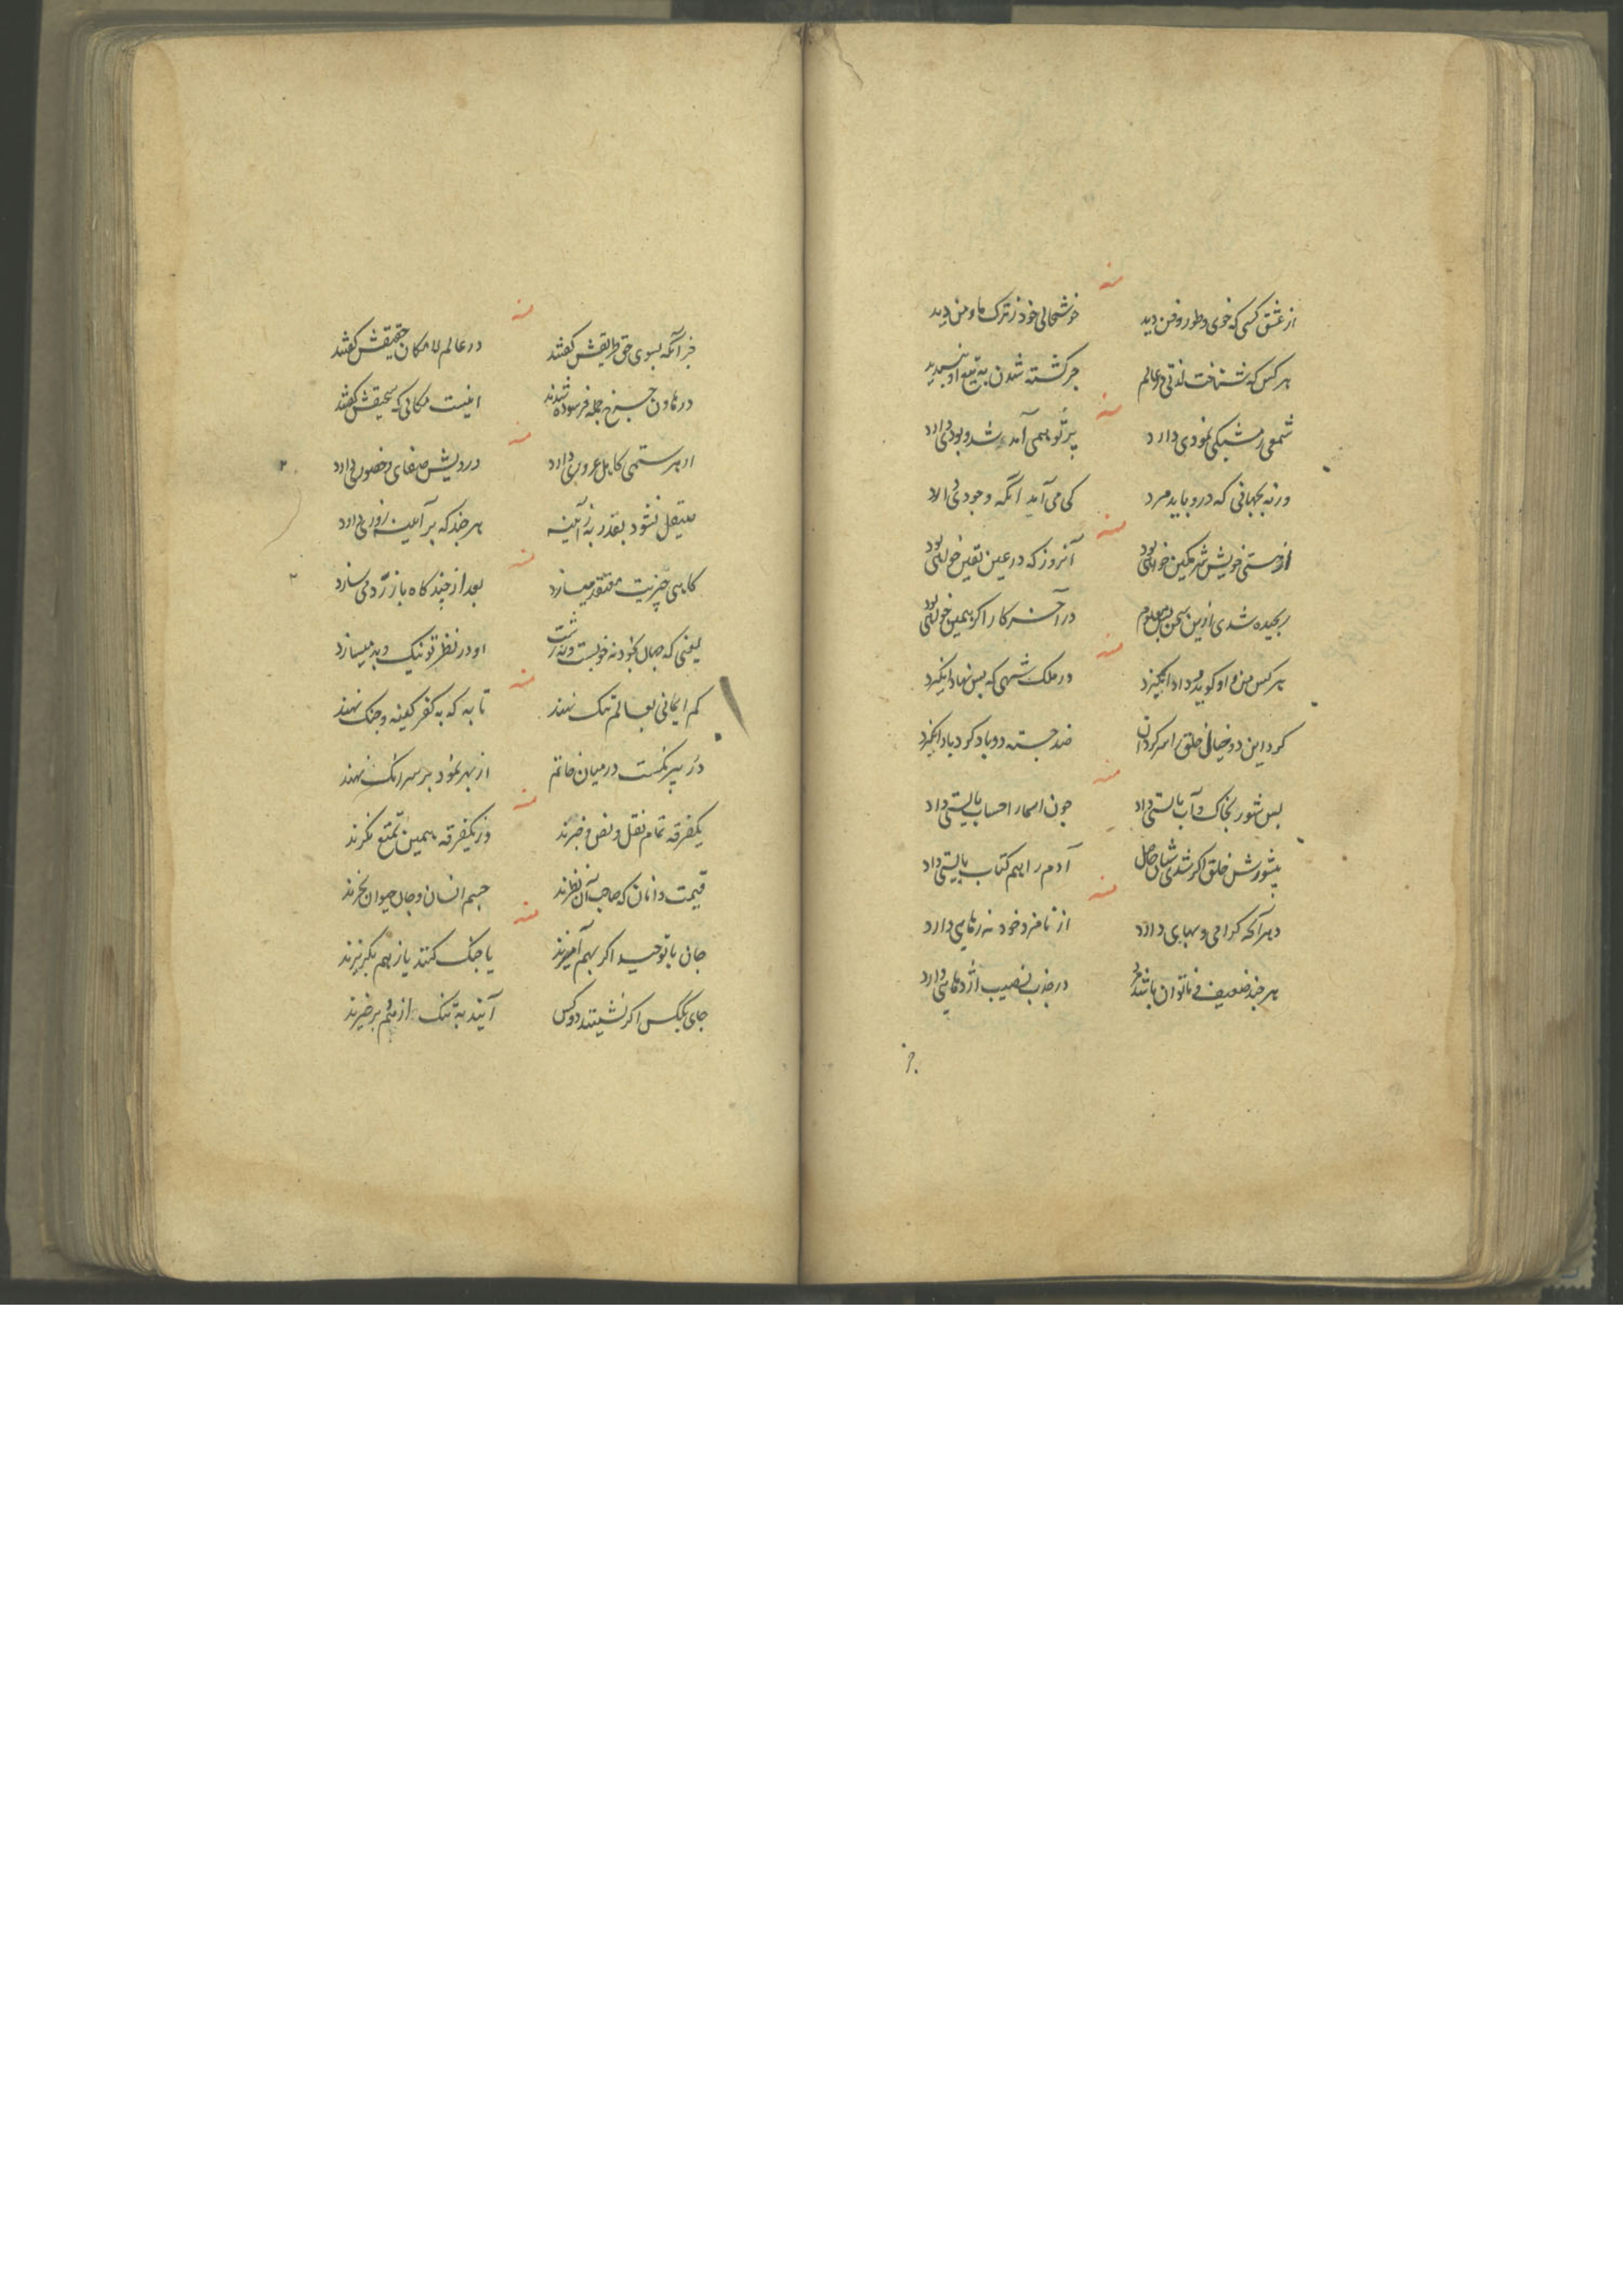 منه
از عشق کسی که خوی و طور و فن دید خوشحالی خود ز ترک ما و من دید
هر کس که شناخت لذتی در عالم جز کشته شدن به تیغ او نپسندید
منه
شمعی ز مشبکی نمودی دارد پرتو بهمی آمد شد و بودی دارد
ورنه بجهانی که درو باید مرد کی می آید آنکه وجودی دارد
منه
از هستی خویش شرمکین خواهی بود آنروز که در عین یقین خواهی بود
رنجیده شدی ازین سخن معلوم در آخر کار اکر همین خواهی بود
منه
هر کس من و او کوید داد انکیزد در ملک شهی که بس نهاد انکیزد
کرد این دو خیال خلق را سرکردان ضد جسته دو باد کرد باد انکیزد
منه
بس شور بخاک و آب بایستی داد چون اسما را حساب بایستی داد
بیشورش خلق اکر شدی حاصل آدم را هم کتاب بایستی داد
منه
هر آنکه کرامی و بهایی دارد از نامزد خود نه رهایی دارد
هر چند ضعیف و ناتوان باشد در جذب نصیب اژدهایی دارد
جز
منه
جز آنکه بسوی حق طریقش کفتند در عالم لامکان حقیقش کفتند
در هاون چرخ جمله فرسوده شدند اینست مکانی که سحیقش کفتند
منه
از هر ستمی کاهل غروری دارد درویش صفای و حضوری دارد
صیقل نشود بقدر به ز آیینه هر چند که بر آیینه زوری دارد
منه
کاهی چیزیت معتقد میسازد بعد از چند کاه باز رد میسازد
یعنی که جهان بخود نه خوبست و نه زشت او در نظر تو نیک و بد میسازد
منه
کم ایمانی بعالم تنک نهند تا به که به کفر کینه و جنک نهند
در میان خاتم از بهر نمود بر سر انک نهند
منه
یکفرقه تمام نقل و نص و خبرند وز یکفرقه همین تمتع نکرند
قیمت دانان که صاحب آن نظرند جسم انسان و جان حیوان نخرند
منه
جان با توحید اکر بهم آمیزند یا جنک کنند یا ز هم بکریزند
جای یکس اکر نشینند دو کس آیند به تنک از هم برخیزند